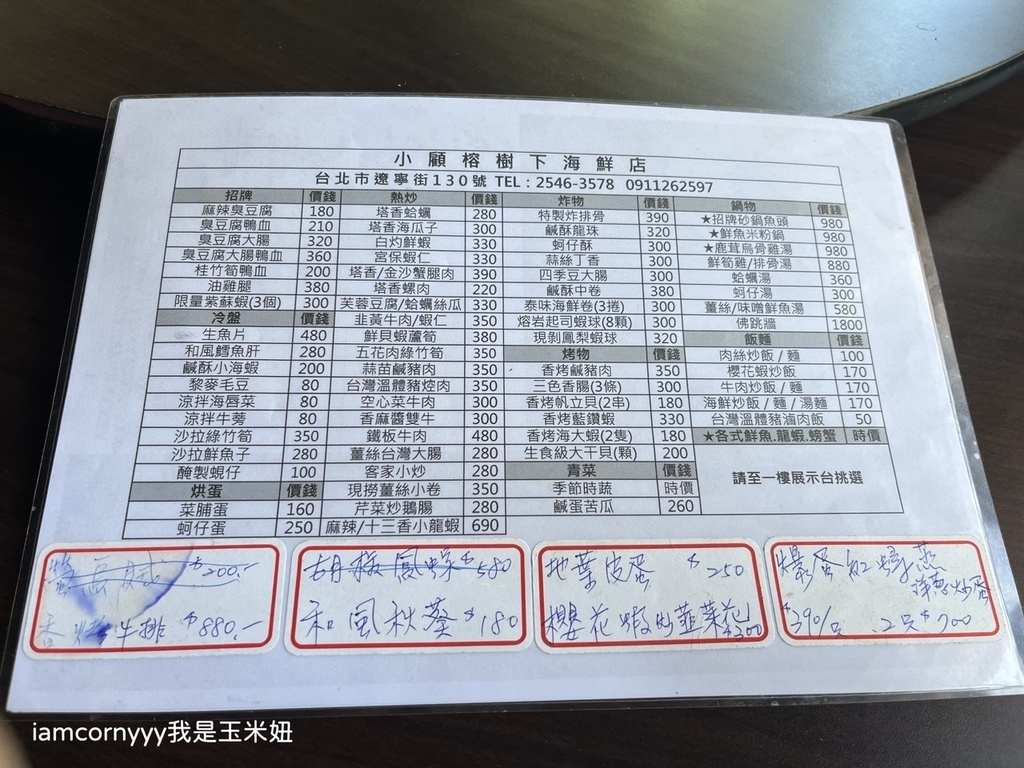 小顧榕樹下海鮮店
台北市遼寧街130號 TEL：2546-3578 0911262597
招牌 價錢 熱炒 價錢 炸物 價錢 鍋物 價錢
麻辣臭豆腐 180 塔香蛤蠣 280 特製炸排骨 390 ★招牌砂鍋魚頭 980
臭豆腐鴨血 210 塔香海瓜子 300 鹹酥龍珠 320 ★鮮魚米粉鍋 980
臭豆腐大腸 320 白灼鮮蝦 330 蚵仔酥 300 ★鹿茸烏骨雞湯 980
臭豆腐大腸鴨血 360 宮保蝦仁 330 蒜絲丁香 300 鮮筍雞/排骨湯 880
桂竹筍鴨血 200 塔香/金沙蟹腿肉 390 四季豆大腸 300 蛤蠣湯 360
油雞腿 380 塔香螺肉 220 鹹酥中卷 380 蚵仔湯 300
限量紫蘇蝦(3個) 300 芙蓉豆腐/蛤蠣絲瓜 330 泰味海鮮卷(3捲) 300 薑絲/味噌鮮魚湯 580
冷盤 價錢 韭黃牛肉/蝦仁 350 熔岩起司蝦球(8顆) 300 佛跳牆 1800
生魚片 480 鮮貝蝦蘆筍 380 現剝鳳梨蝦球 320 飯麵 價錢
和風鱈魚肝 280 五花肉綠竹筍 350 烤物 價錢 肉絲炒飯 / 麵 100
鹹酥小海蝦 200 蒜苗鹹豬肉 350 香烤鹹豬肉 350 櫻花蝦炒飯 170
黎麥毛豆 80 台灣溫體豬焢肉 350 三色香腸(3條) 300 牛肉炒飯 / 麵 170
涼拌海唇菜 80 空心菜牛肉 300 香烤帆立貝(2串) 180 海鮮炒飯 / 麵 / 湯麵 170
涼拌牛蒡 80 香麻醬雙牛 300 香烤藍鑽蝦 330 台灣溫體豬滷肉飯 50
沙拉綠竹筍 350 鐵板牛肉 480 香烤海大蝦(2隻) 180 ★各式鮮魚.龍蝦.螃蟹 時價
沙拉鮮魚子 280 薑絲台灣大腸 280 生食級大干貝(顆) 200
醃製蜆仔 100 客家小炒 280 青菜 價錢 請至一樓展示台挑選
烘蛋 價錢 現撈薑絲小卷 350 季節時蔬 時價
菜脯蛋 160 芹菜炒鵝腸 280 鹹蛋苦瓜 260
蚵仔蛋 250 麻辣/十三香小龍蝦 690
$200.-
牛排 $880.-
胡椒鳳蝦 $580
和風秋葵 $180
地葉皮蛋 $250
櫻花蝦炒韭菜花 $200
爆蛋紅蟳 蒸
洋蔥炒蛋
$390/只 2只$700
iamcornyyy我是玉米妞